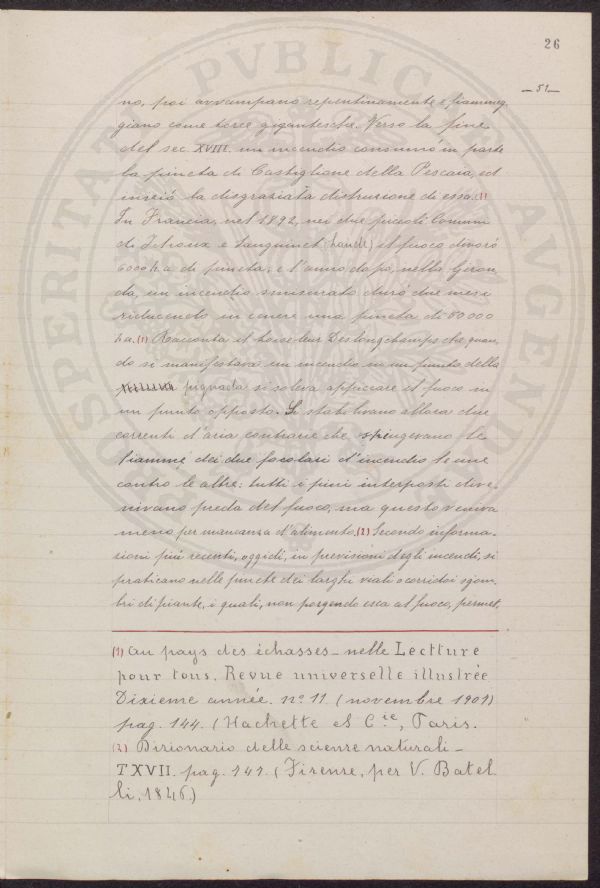 26
— 51 —
no, poi avvampano repentinamente e fiammeg,
giano come torce gigantesche. Verso la fine
del sec. XVIII. un incendio consumò in parte
la pineta di Castiglione della Pescaia, ed
iniziò la disgraziata distruzione di essa. (1)
In Francia, nel 1892, nei due piccoli Comuni
di e Sanguinet (Landes) il fuoco divorò
6000 h.a di pineta; e l'anno dopo, nella Giron,
da, un incendio smisurato durò due mesi
riducendo in cenere una pineta di 80 000
ha. (1) Racconta il Loiseleur Deslongchamps che, quan,
do si manifestava un incendio in un punto della
pignada si soleva appiccare il fuoco in
un punto opposto. Si stabilivano allora due
correnti d'aria contrarie che spingevano le
fiamme dei due focolari d'incendio le une
contro le altre: tutti i pini interposti dive,
nivano preda del fuoco, ma questo veniva
meno per mancanza d'alimento. (2) Secondo informa,
zioni più recenti, oggidì, in previsioni degli incendi, si
praticano nelle pinete dei larghi viali o corridoi sgom,
bri di piante, i quali, non porgendo esca al fuoco, permet,
(1) Au pays des échasses – nelle Lectture
pour tous. Revue universelle illustrée
Dixieme année. nº 11 (novembre 1909)
pag. 144. (Hachette et C.ie, Paris.
(2) Dizionario delle scienze naturali –
T XVII. pag. 242. (Firenze, per V. Batel
li, 1846.)
PVBLICA
AVGENDAE
PROSPERITATI